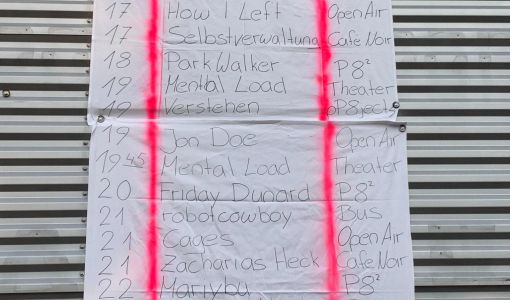 17 How I Left Open Air
17 Selbstverwaltung Cafe Noir
18 ParkWalker P8²
19 Mental Load Theater
19 Verstehen oP8jects
19 Jon Doe Open Air
19 45 Mental Load Theater
20 Friday Dunard P8²
21 robotcowboy Bus
21 Cages Open Air
21 Zacharias Heck Cafe Noir
22 Mariybu P8²